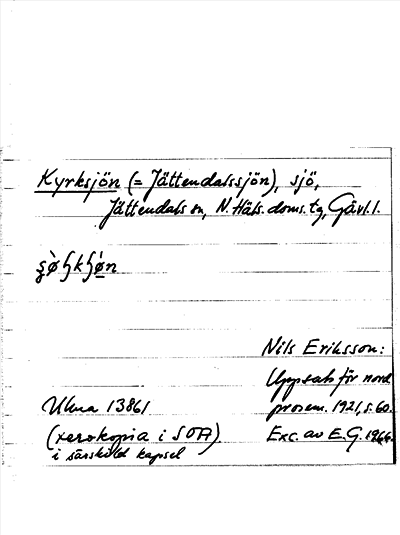 Kyrksjön (= Jättendalssjön), sjö,
Jättendals sn, N. Häls. doms. tg, Gävl. l.
Nils Eriksson:
Uppsats för nord.
Ulma 13861
prosem. 1921, s. 60.
(xerokopia i SOA)
Exc. av E.G. 1966.
i särskild kapsel